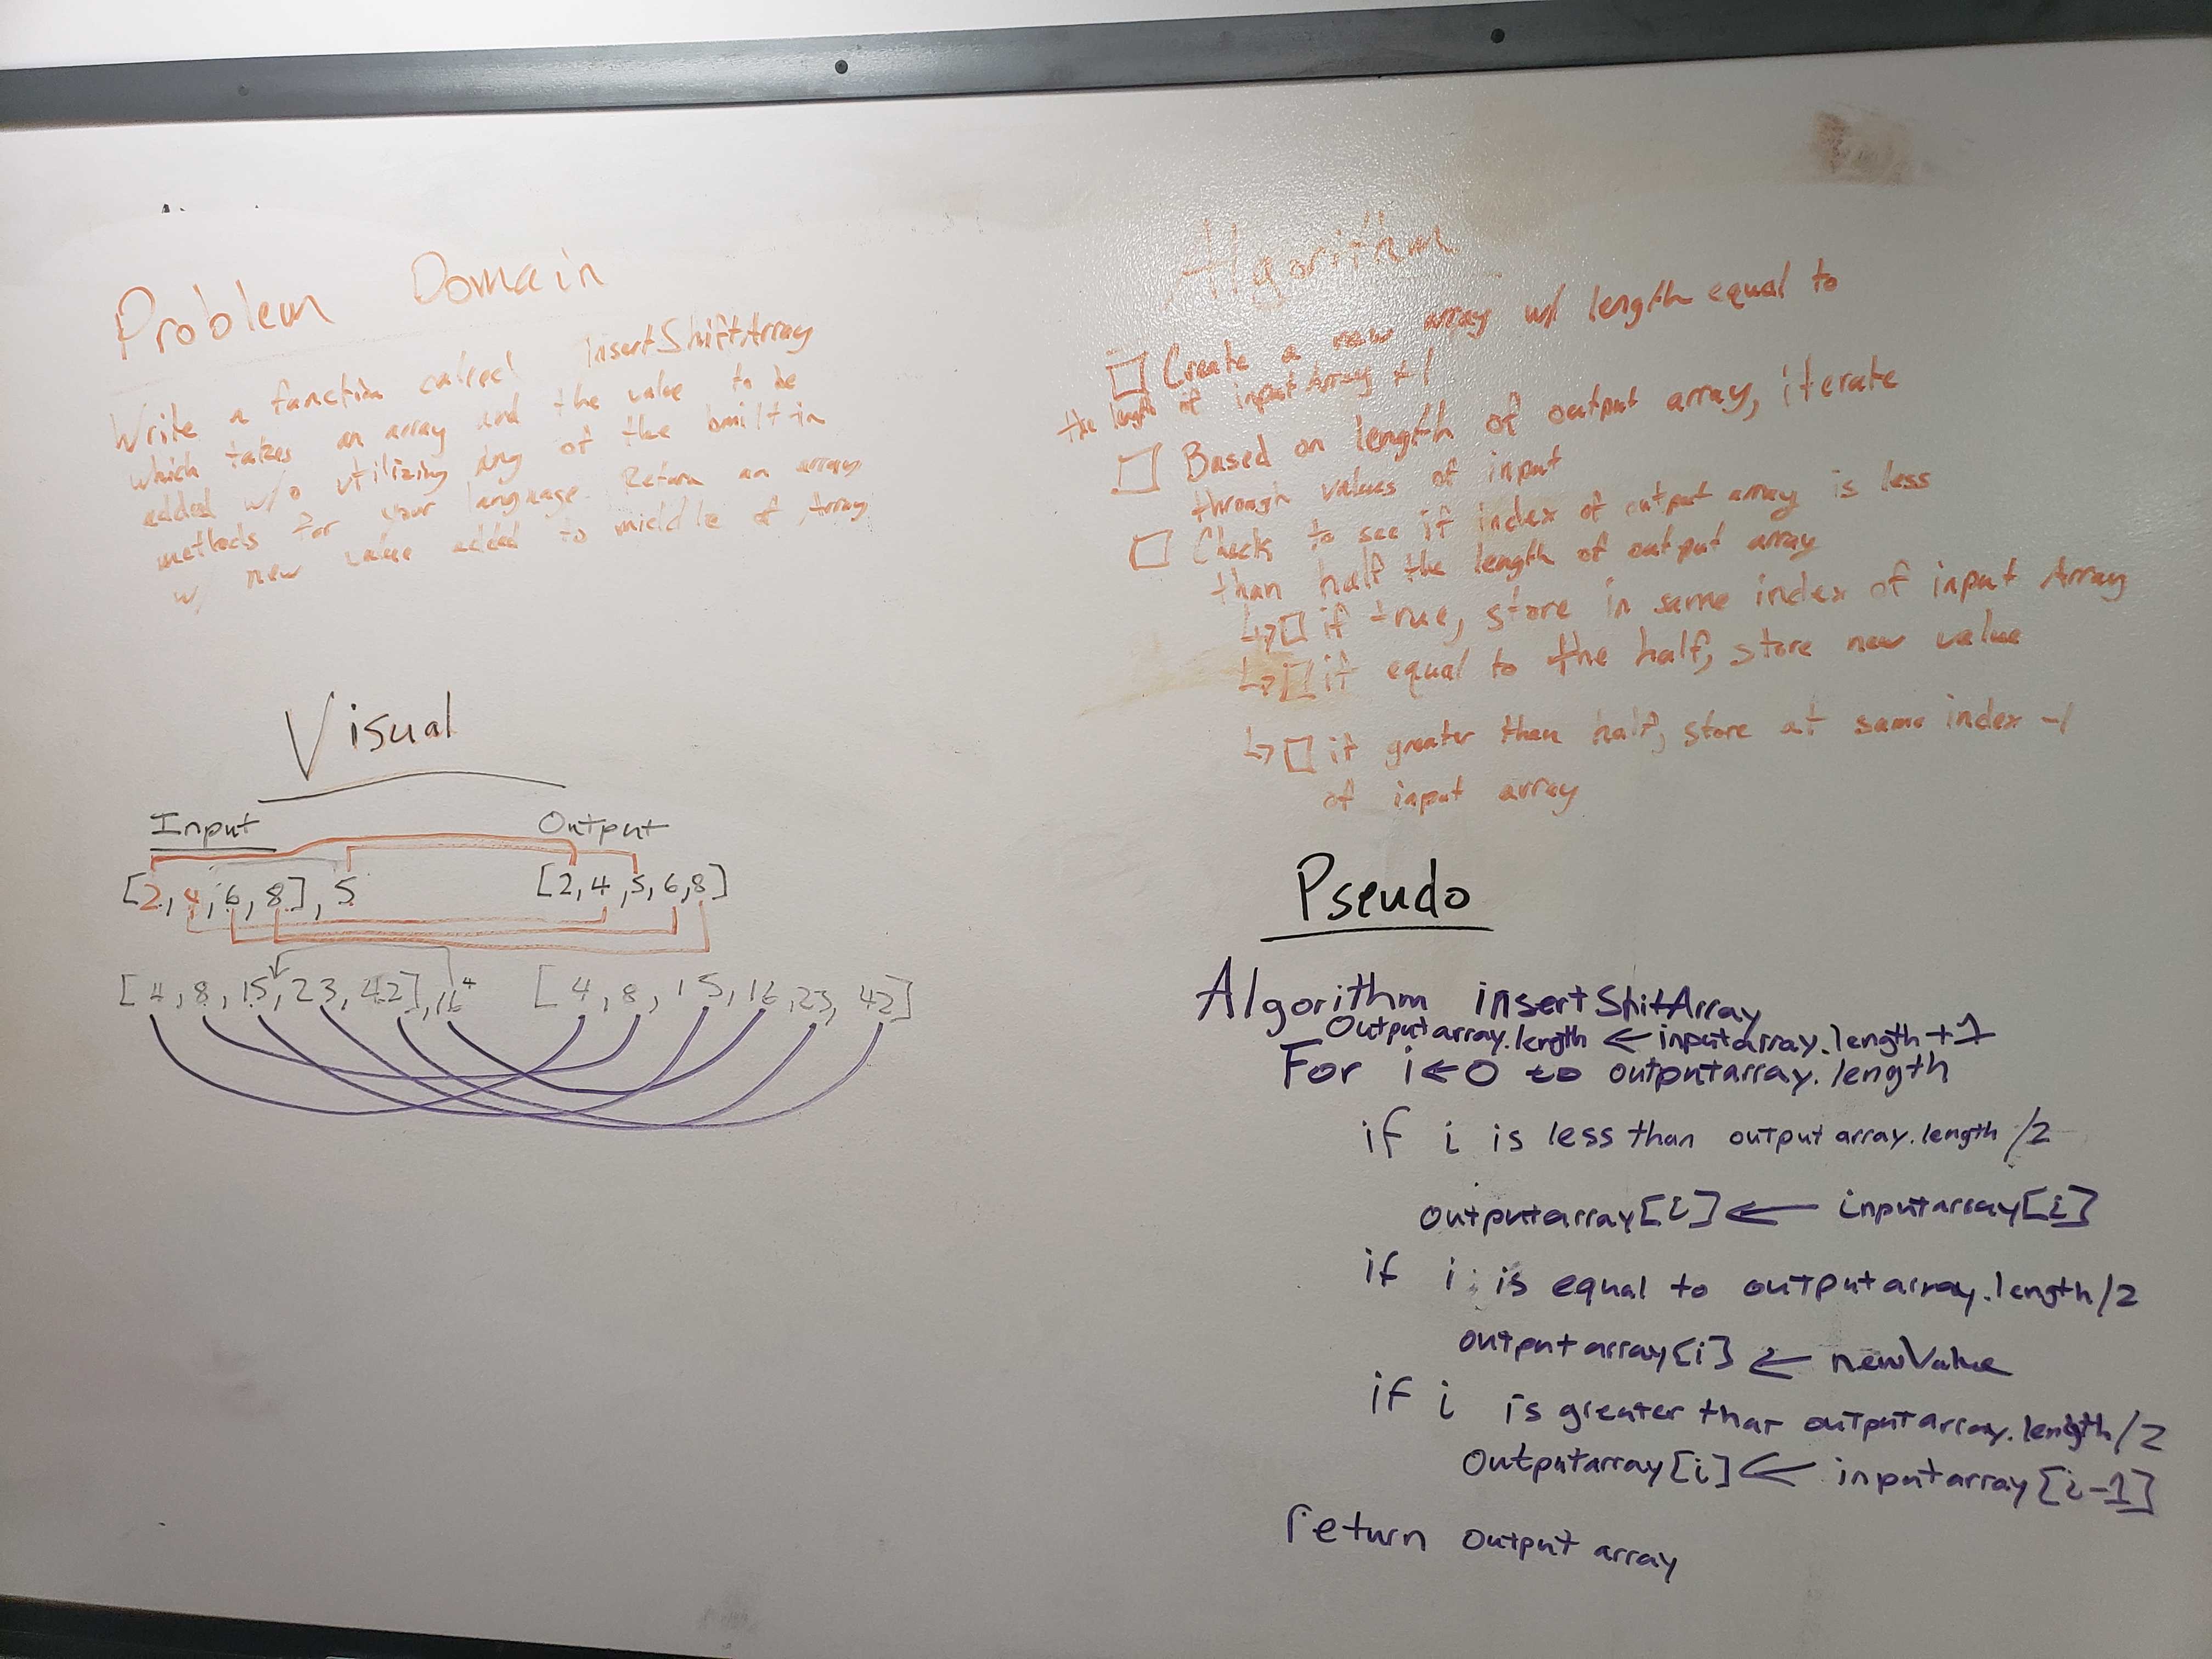 Problem Domain
Write a function called insertShiftArray
which takes an array and the value to be
added w/o utilizing any of the built-in
methods for your language. Return an array
w/ new value added to middle of Array
Visual
Input Output
[2,4,6,8],5 [2,4,5,6,8]
[4,8,15,23,42],16 [4,8,15,16,23,42]
Algorithm
Create a new array w/ length equal to
the length of input Array +1
Based on length of output array, iterate
through values of input
Check to see if index of output array is less
than half the length of output array
↳□ if true, store in same index of input Array
↳□ if equal to the half, store new value
↳□ if greater than half, store at same index -1
of input array
Pseudo
Algorithm insertShiftArray
Outputarray.length ← inputarray.length+1
For i←0 to outputarray.length
if i is less than outputarray.length/2
outputarray[i] ← inputarray[i]
if i is equal to outputarray.length/2
outputarray[i] ← newValue
if i is greater than outputarray.length/2
Outputarray[i] ← inputarray[i-1]
return output array